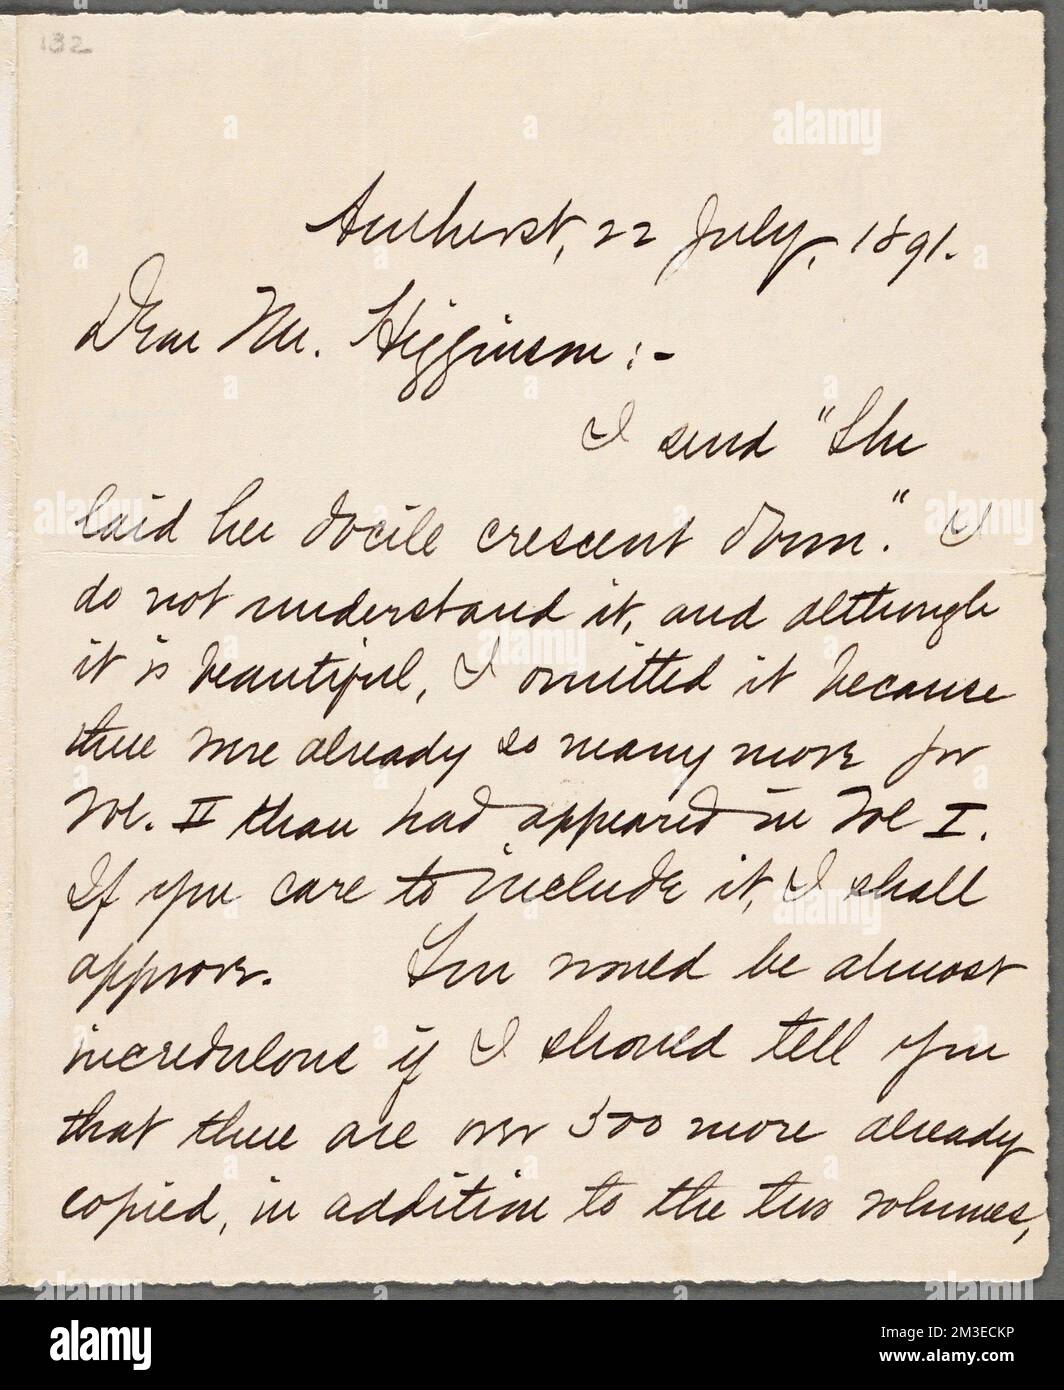 132
Amherst, 22 July, 1891.
Dear Mr. Higginson:-
I send "She
laid her docile crescent down." I
do not understand it, and although
it is beautiful, I omitted it because
there were already so many more for
Vol. II than had appeared in Vol I.
If you care to include it, I shall
approve. You would be almost
incredulous if I should tell you
that there are over 500 more already
copied, in addition to the two volumes,
alamy
Image ID: 2M3ECKP
www.alamy.com